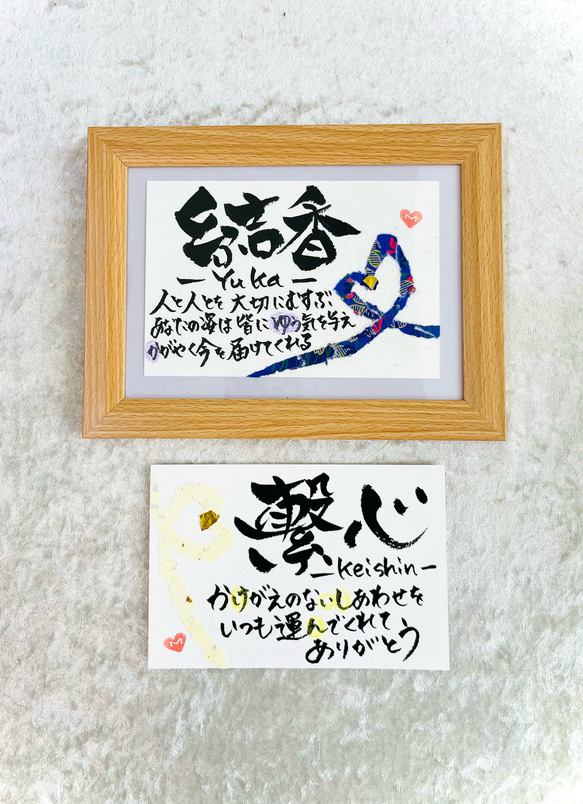 結香
ーYukaー
人と人とを大切にむすぶ
あなたの姿は皆にゆう気を与え
かがやく今を届けてくれる
M
繋心
ーKeishinー
かけがえのないしあわせを
いつも運んでくれて
ありがとう
M